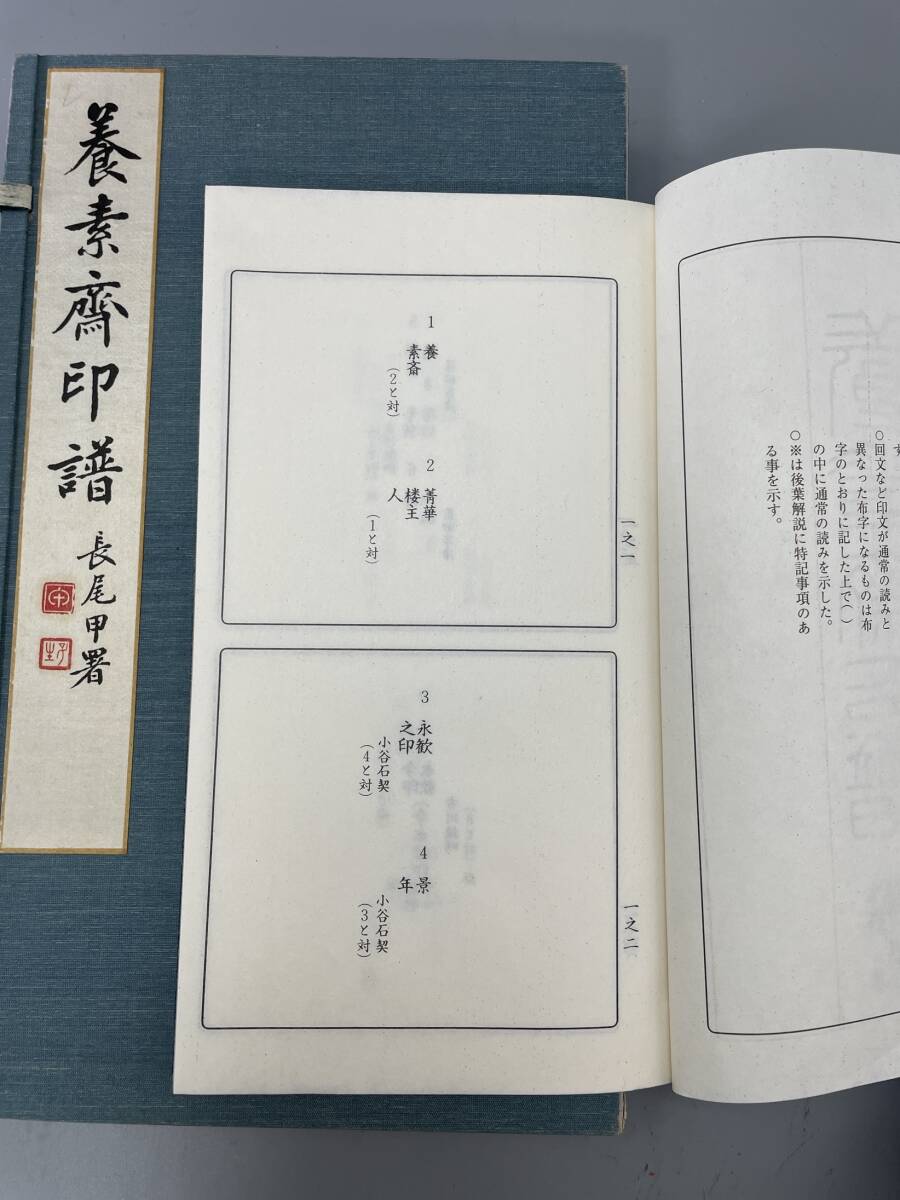 養素齋印譜
長尾甲署
す
○回文など印文が通常の読みと
異なった布字になるものは布
字のとおりに記した上で（ ）
の中に通常の読みを示した。
○※は後葉解説に特記事項のあ
る事を示す。
一之一
1 養
素斎
（2と対）
2 菁華
楼主
人
（1と対）
一之二
3 永歓
之印
小谷石契
（4と対）
4 景
年
小谷石契
（3と対）